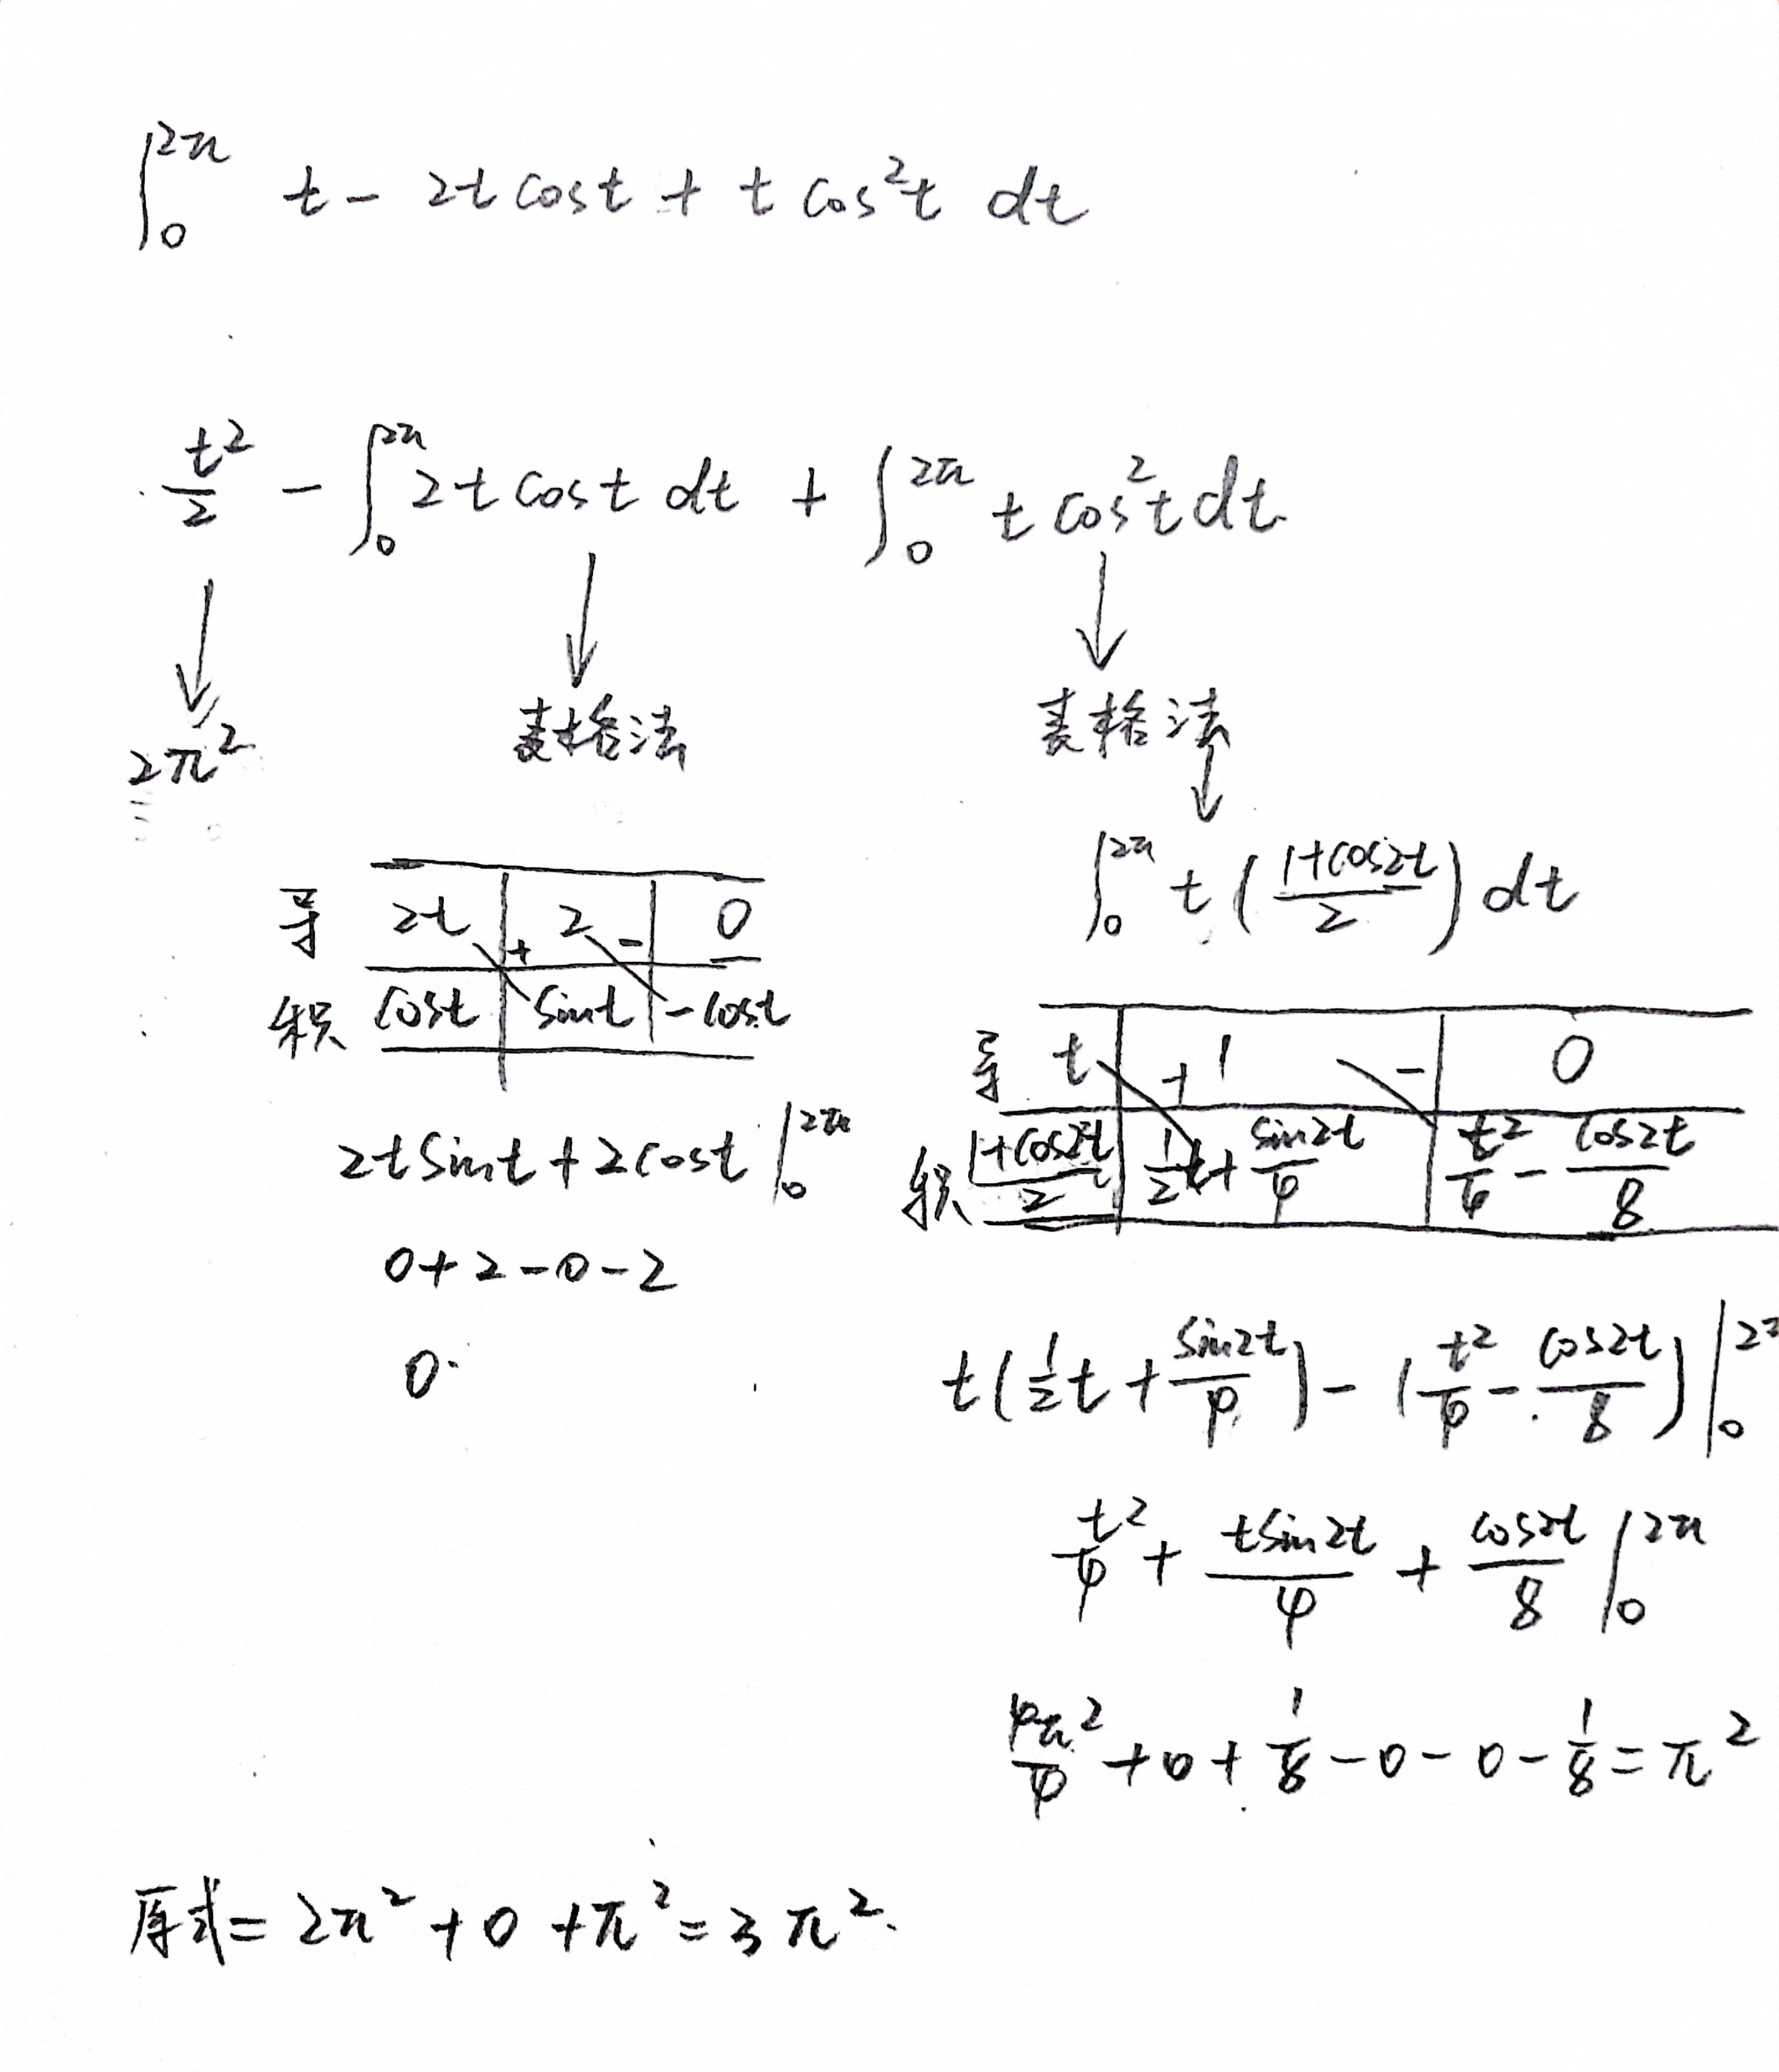 ∫₀^{2π} t - 2t cost + t cos²t dt
t²/2 - ∫₀^{2π} 2t cost dt + ∫₀^{2π} t cos²t dt
↓ ↓ ↓
2π² 表格法 表格法
↓
∫₀^{2π} t ( (1+cos2t)/2 ) dt
导 2t + 2 - 0
积 cost sint -cost
2t sint + 2cost |₀^{2π}
0+2-0-2
0
导 t + 1 - 0
积 (1+cos2t)/2 (1/2)t + sin2t/4 t²/4 - cos2t/8
t( (1/2)t + sin2t/4 ) - ( t²/4 - cos2t/8 ) |₀^{2π}
t²/4 + tsin2t/4 + cos2t/8 |₀^{2π}
4π²/4 + 0 + 1/8 - 0 - 0 - 1/8 = π²
原式 = 2π² + 0 + π² = 3π².